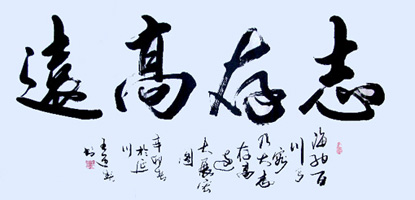 志存高遠
海纳百
川
容
乃大志
存高
远
大展宏
图
辛卯
於延
川